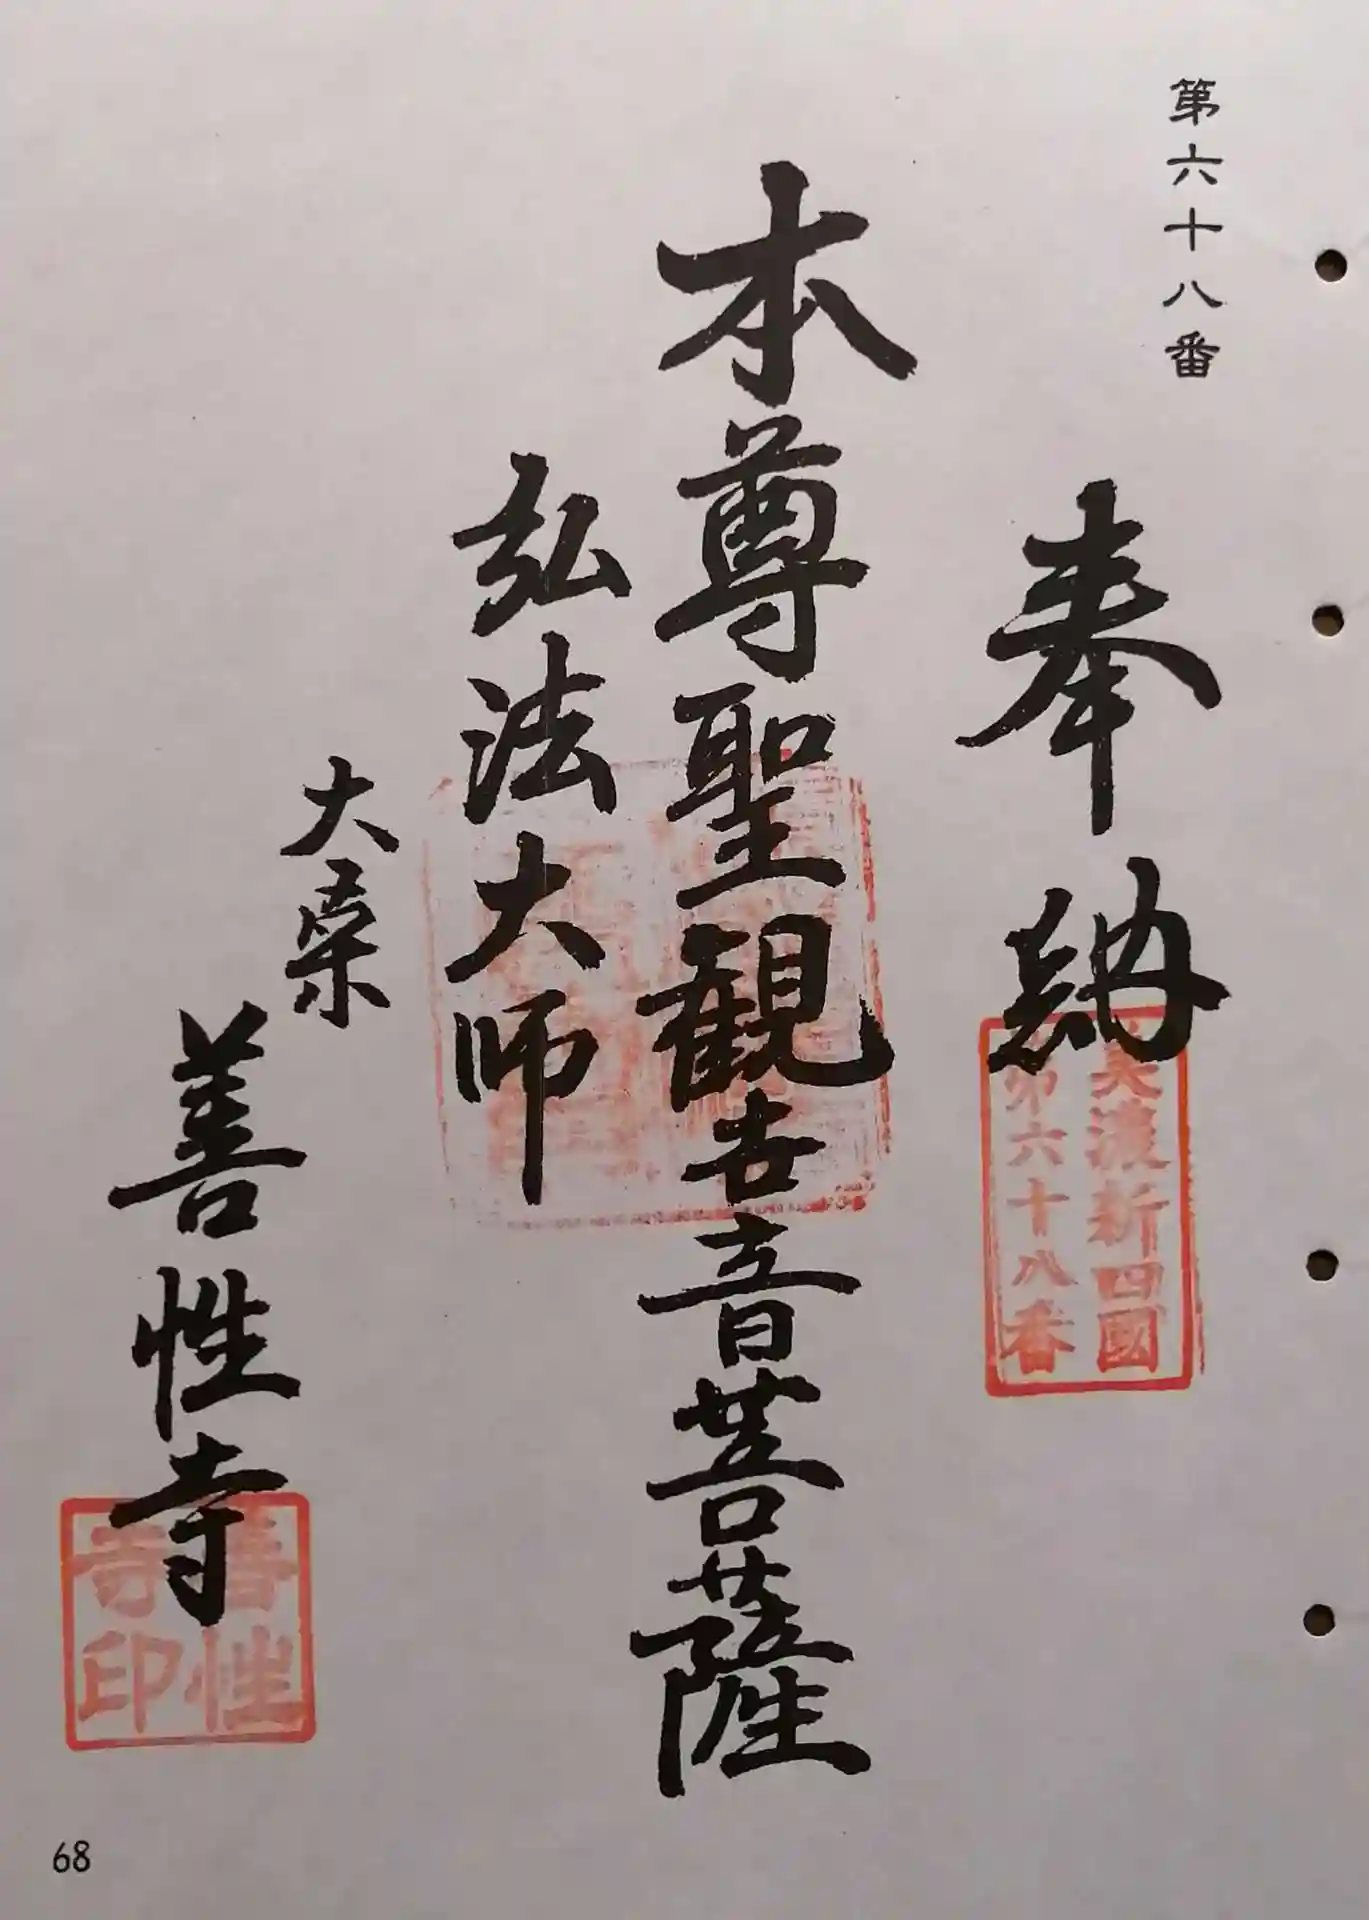 第六十八番
奉納
美濃新四國
第六十八番
本尊聖観世音菩薩
弘法大师
大桒
善性寺
善性
寺印
68